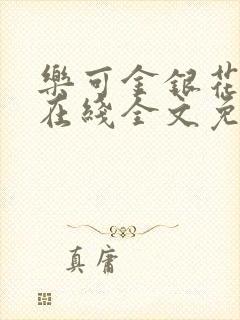 樂可金銀花
在綫全文免
真庸